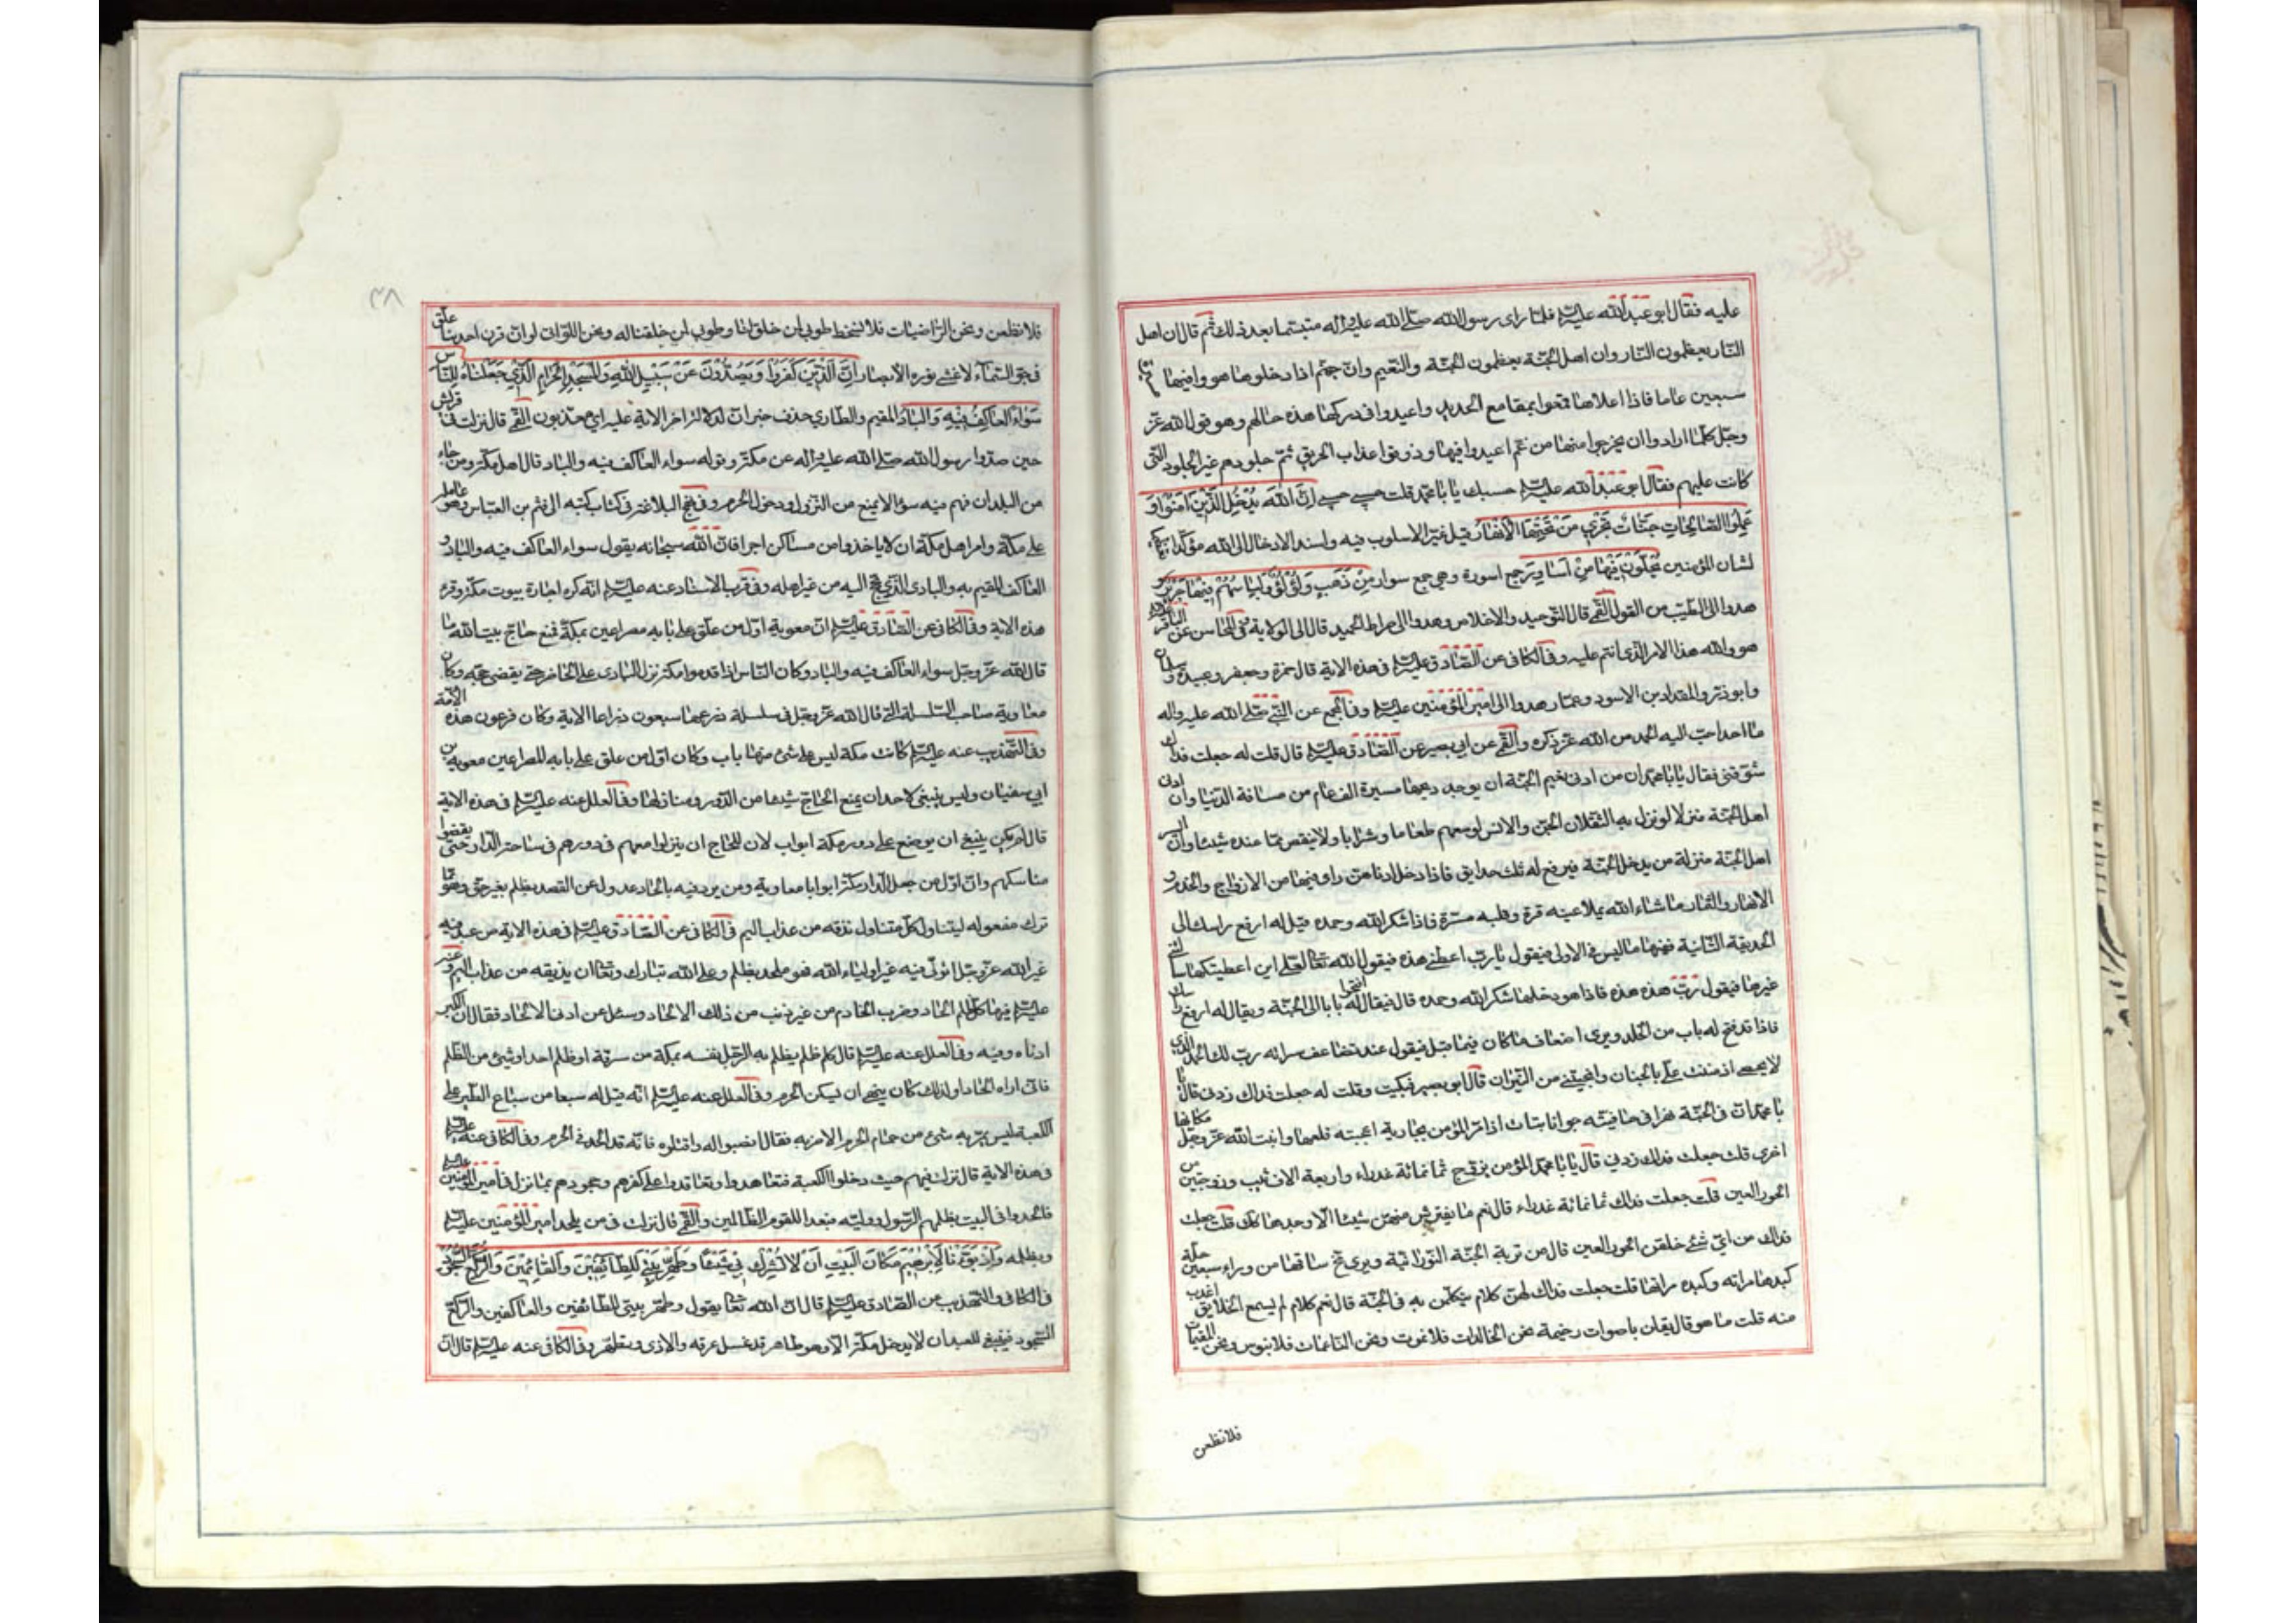 عليه فقال ابو عبد الله عليه السلام فلما راى رسول الله صلى الله عليه واله متبسما بعد ذلك ثم قال ان اهل
النار يعظمون النار وان اهل الجنة يعظمون الجنة والنعيم وان جهنم اذا دخلوها هووا فيها
سبعين عاما فاذا اعلاها قمعوا بمقامع الحديد واعيدوا في دركها هذه حالهم وهو قول الله عز
وجل كلما ارادوا ان يخرجوا منها من غم اعيدوا فيها وذوقوا عذاب الحريق ثم تبدل جلودهم غير الجلود التي
كانت عليهم فقال ابو عبد الله عليه السلام حسبك يا با محمد قلت حسبي حسبي اِنَّ اللهَ يُدْخِلُ الَّذِينَ امَنُوا وَ
عَمِلُوا الصَّالِحَاتِ جَنَّاتٍ تَجْرِي مِنْ تَحْتِهَا الْاَنْهَارُ قيل غير الاسلوب فيه واسند الادخال الى الله مؤكدا
لشان المؤمنين يُحَلَّوْنَ فِيهَا مِنْ اَسَاوِرَ جمع اسورة وهي جمع سوار مِنْ ذَهَبٍ وَلُؤْلُؤًا وَلِبَاسُهُمْ فِيهَا حَرِيرٌ وَ
هدوا الى الطيب من القول القمي قال التوحيد والاخلاص وهدوا الى صراط الحميد قال الى الولاية وفي المحاسن عن الباقر
هو والله هذا الامر الذي انتم عليه وفي الكافي عن الصادق عليه السلام في هذه الاية قال حمزة وجعفر وعبيدة وسلمان
وابو ذر والمقداد بن الاسود وعمار هدوا الى امير المؤمنين عليه السلام وفي المجمع عن النبي صلى الله عليه واله
ما احد احب اليه الحمد من الله عز ذكره والقمي عن ابي بصير عن الصادق عليه السلام قال قلت له جعلت فداك
شوقني فقال يا با محمد ان من ادنى نعيم الجنة ان يوجد ريحها مسيرة الف عام من مسافة الدنيا وان ادنى
اهل الجنة منزلا لو نزل به الثقلان الجن والانس لوسعهم طعاما وشرابا ولا ينقص مما عنده شيئا وان ايسر
اهل الجنة منزلة من يدخل الجنة فيرفع له ثلث حدايق فاذا دخل ادناهن راى فيها من الازواج والخدم و
الانهار والثمار ما شاء الله يملا عينه قرة وقلبه مسرة فاذا شكر الله وحمده قيل له ارفع راسك الى
الحديقة الثانية ففيها ما ليس في الاولى فيقول يا رب اعطني هذه فيقول الله تعالى لعلي ان اعطيتكها سالتني
غيرها فيقول رب هذه هذه فاذا هو دخلها شكر الله وحمده قال فيقال افتحوا له بابا الى الجنة ويقال له ارفع راسك
فاذا قد فتح له باب من الخلد ويرى اضعاف ما كان فيما قبل فيقول عند تضاعف مسراته رب لك الحمد الذي
لا يحصى اذ مننت علي بالجنان وانجيتني من النيران قال ابو بصير فبكيت وقلت له جعلت فداك زدني قال يا
با محمد ان في الجنة نهرا في حافيته جوار نابتات اذا مر المؤمن بجارية اعجبته قلعها وانبت الله عز وجل مكانها
اخرى قلت جعلت فداك زدني قال يا با محمد المؤمن يزوج ثمانمائة عذراء واربعة الاف ثيب وزوجتين من
الحور العين قلت جعلت فداك ثمانمائة عذراء قال نعم ما يفترش منهن شيئا الا وجدها كذلك قلت جعلت
فداك من اي شئ خلقن الحور العين قال من تربة الجنة النورانية ويرى مخ ساقها من وراء سبعين حلة
كبدها مراته وكبده مراتها قلت جعلت فداك الهن كلام يتكلمن به في الجنة قال نعم كلام لم يسمع الخلايق اعذب
منه قلت ما هو قال يقلن باصوات رخيمة نحن الخالدات فلا نموت ونحن الناعمات فلا نبوس ونحن المقيمات
فلا نظعن
٣٨
فلا نظعن ونحن الراضيات فلا نسخط طوبى لمن خلق لنا وطوبى لمن خلقنا له ونحن اللواتي لو ان قرن احدينا علق
في جو السماء لاغشى نوره الابصار اِنَّ الَّذِينَ كَفَرُوا وَيَصُدُّونَ عَنْ سَبِيلِ اللهِ وَالْمَسْجِدِ الْحَرَامِ الَّذِي جَعَلْنَاهُ لِلنَّاسِ
سَوَاءً الْعَاكِفُ فِيهِ وَالْبَادِ المقيم والطاري حذف خبر ان لدلالة اخر الاية عليه اي معذبون القمي قال نزلت في قريش
حين صدوا رسول الله صلى الله عليه واله عن مكة وقوله سواء العاكف فيه والباد قال اهل مكة ومن جاء
من البلدان فهم فيه سواء لا يمنع من النزول ودخول الحرم وفي نهج البلاغة في كتاب كتبه الى قثم بن العباس وهو عامله
على مكة وامر اهل مكة ان لا ياخذوا من مساكن اجرا فان الله سبحانه يقول سواء العاكف فيه والباد و
العاكف المقيم به والبادي الذي يحج اليه من غير اهله وفي قرب الاسناد عنه عليه السلام انه كره اجارة بيوت مكة وقرء
هذه الاية وفي الكافي عن الصادق عليه السلام ان معوية اول من علق على بابه مصراعين بمكة فمنع حاج بيت الله ما
قال الله عز وجل سواء العاكف فيه والباد وكان الناس اذا قدموا مكة نزل البادي على الحاضر حتى يقضي حجه وكان
معاوية صاحب السلسلة التي قال الله عز وجل في سلسلة ذرعها سبعون ذراعا الاية وكان فرعون هذه الامة
وفي التهذيب عنه عليه السلام كانت مكة ليس على شئ منها باب وكان اول من علق على بابه المصراعين معوية بن
ابي سفيان وليس ينبغي لاحد ان يمنع الحاج شيئا من الدور ومنازلها وفي العلل عنه عليه السلام في هذه الاية
قال لم يكن ينبغي ان يوضع على دور مكة ابواب لان للحاج ان ينزلوا معهم في دورهم في ساحة الدار حتى يقضوا
مناسكهم وان اول من جعل لدار مكة ابوابا معاوية ومن يرد فيه بالحاد عدول عن القصد بظلم بغير حق وهو مما
ترك مفعوله ليتناول كل متناول نذقه من عذاب اليم في الكافي عن الصادق عليه السلام في هذه الاية من عبد فيه
غير الله عز وجل او تولى فيه غير اولياء الله فهو ملحد بظلم وعلى الله تبارك وتعالى ان يذيقه من عذاب اليم و عنه
عليه السلام فيها كل ظلم الحاد وضرب الخادم من غير ذنب من ذلك الالحاد وسئل عن ادنى الالحاد فقال ان الكبر
ادناه وفيه وفي العلل عنه عليه السلام قال كل ظلم يظلم به الرجل نفسه بمكة من سرقة او ظلم احد او شئ من الظلم
فاني اراه الحادا ولذلك كان ينهى ان يسكن الحرم وفي العلل عنه عليه السلام انه قيل له سبعا من سباع الطير على
الكعبة ليس يمر به شئ من حمام الحرم الا ضربه فقال انصبوا له واقتلوه فانه قد الحد في الحرم وفي الكافي عنه عليه السلام
في هذه الاية قال نزلت فيهم حيث دخلوا الكعبة فتعاهدوا وتعاقدوا على كفرهم وجحودهم بما نزل في امير المؤمنين عليه السلام
فالحدوا في البيت بظلمهم الرسول ووليه فبعدا للقوم الظالمين والقمي قال نزلت في من يلحد امير المؤمنين عليه السلام
ويظلمه وَاِذْ بَوَّاْنَا لِاِبْرٰهِيمَ مَكَانَ الْبَيْتِ اَنْ لَا تُشْرِكْ بِي شَيْئًا وَطَهِّرْ بَيْتِيَ لِلطَّائِفِينَ وَالْقَائِمِينَ وَالرُّكَّعِ السُّجُودِ
في الكافي والتهذيب عن الصادق عليه السلام قال ان الله تعالى يقول وطهر بيتي للطائفين والعاكفين والركع
السجود فينبغي للعبد ان لا يدخل مكة الا وهو طاهر قد غسل عرقه والاذى وتطهر وفي الكافي عنه عليه السلام قال ان